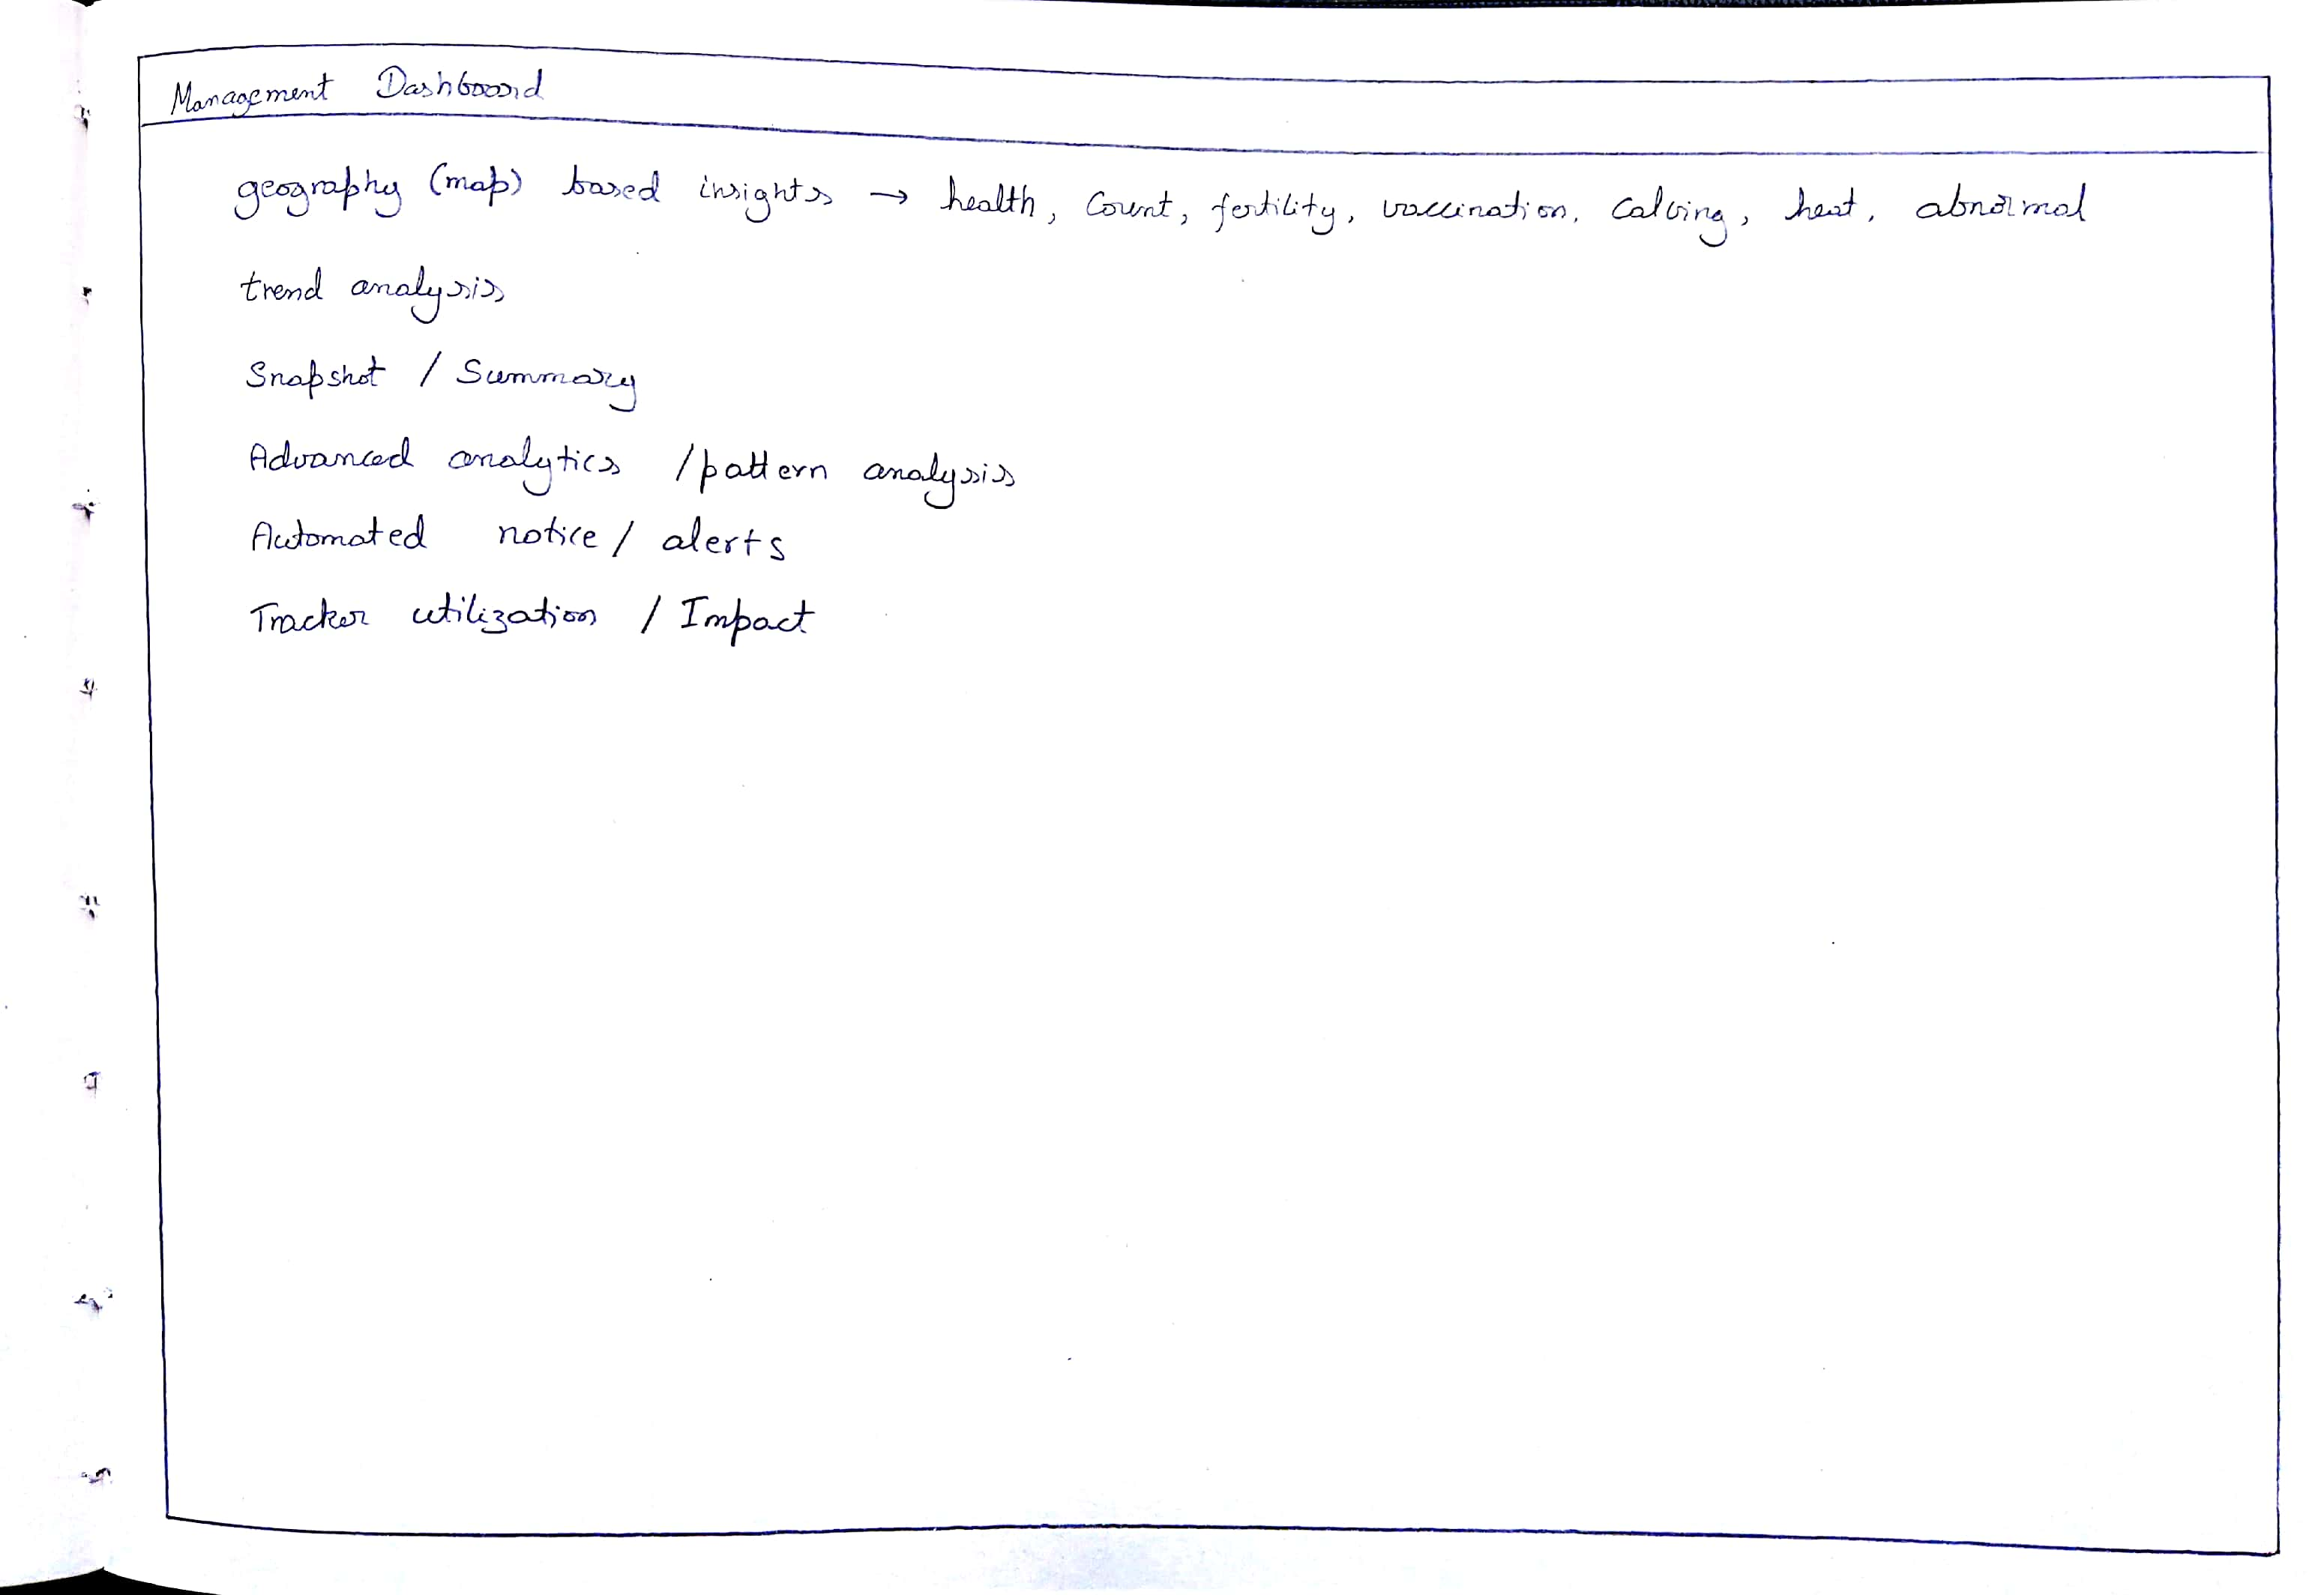 Management Dashboard
geography (map) based insights → health, Count, fertility, vaccination, Calving, heat, abnormal
trend analysis
Snapshot / Summary
Advanced analytics / pattern analysis
Automated notice / alerts
Tracker utilization / Impact